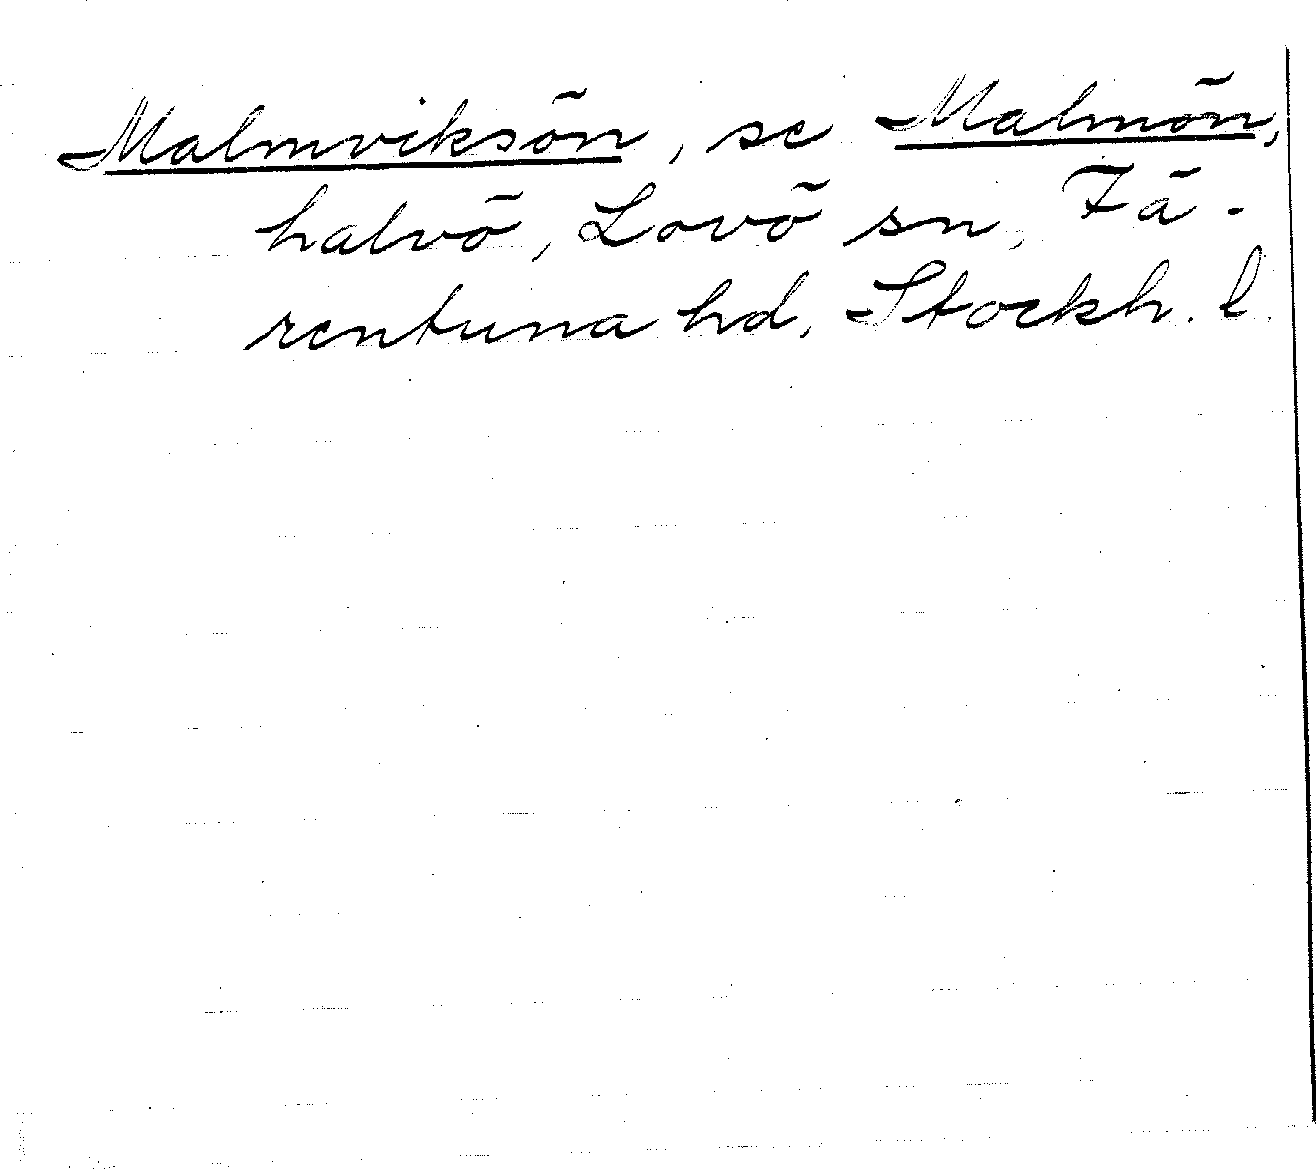 Malmviksön, se Malmön,
halvö, Lovö sn, Fä-
rentuna hd, Stockh. l.